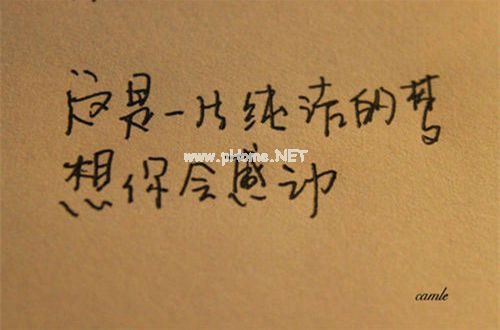 这是一片纯洁的梦
想你会感动
www.pHome.NET
camle